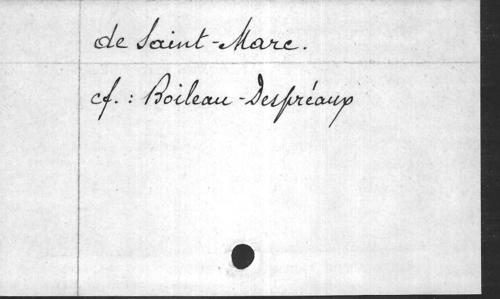 de Saint-Marc.
cf. : Boileau-Despréaux